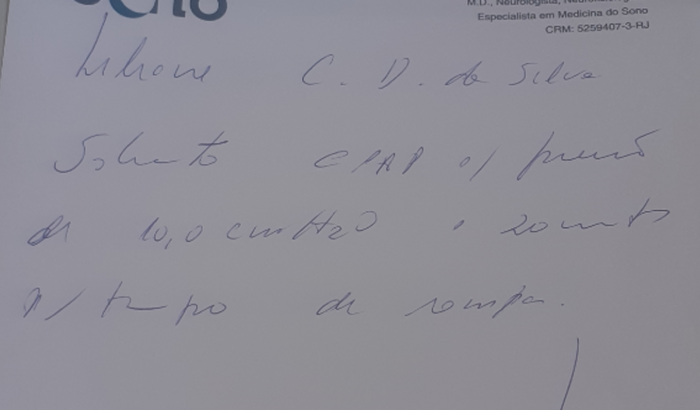 M.D., Neurologista,
Especialista em Medicina do Sono
CRM: 5259407-3-RJ
Liliane C. D. da Silva
Solicito CPAP c/ pressão
de 10,0 cmH2O e 20 minutos
p/ tempo de rampa.